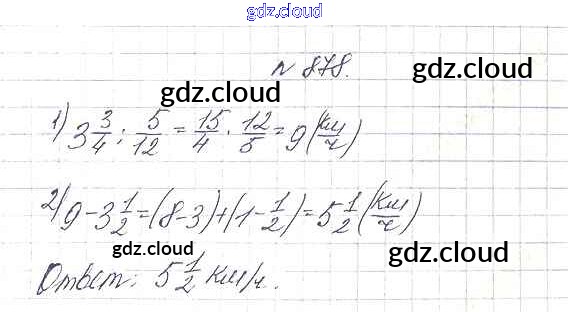 gdz.cloud
№ 878.
gdz.cloud
gdz.cloud
1) 3 3/4 : 5/12 = 15/4 · 12/5 = 9 (км/ч)
2) 9 - 3 1/2 = (8-3)+(1- 1/2) = 5 1/2 (км/ч)
gdz.cloud
gdz.cloud
Ответ: 5 1/2 км/ч.